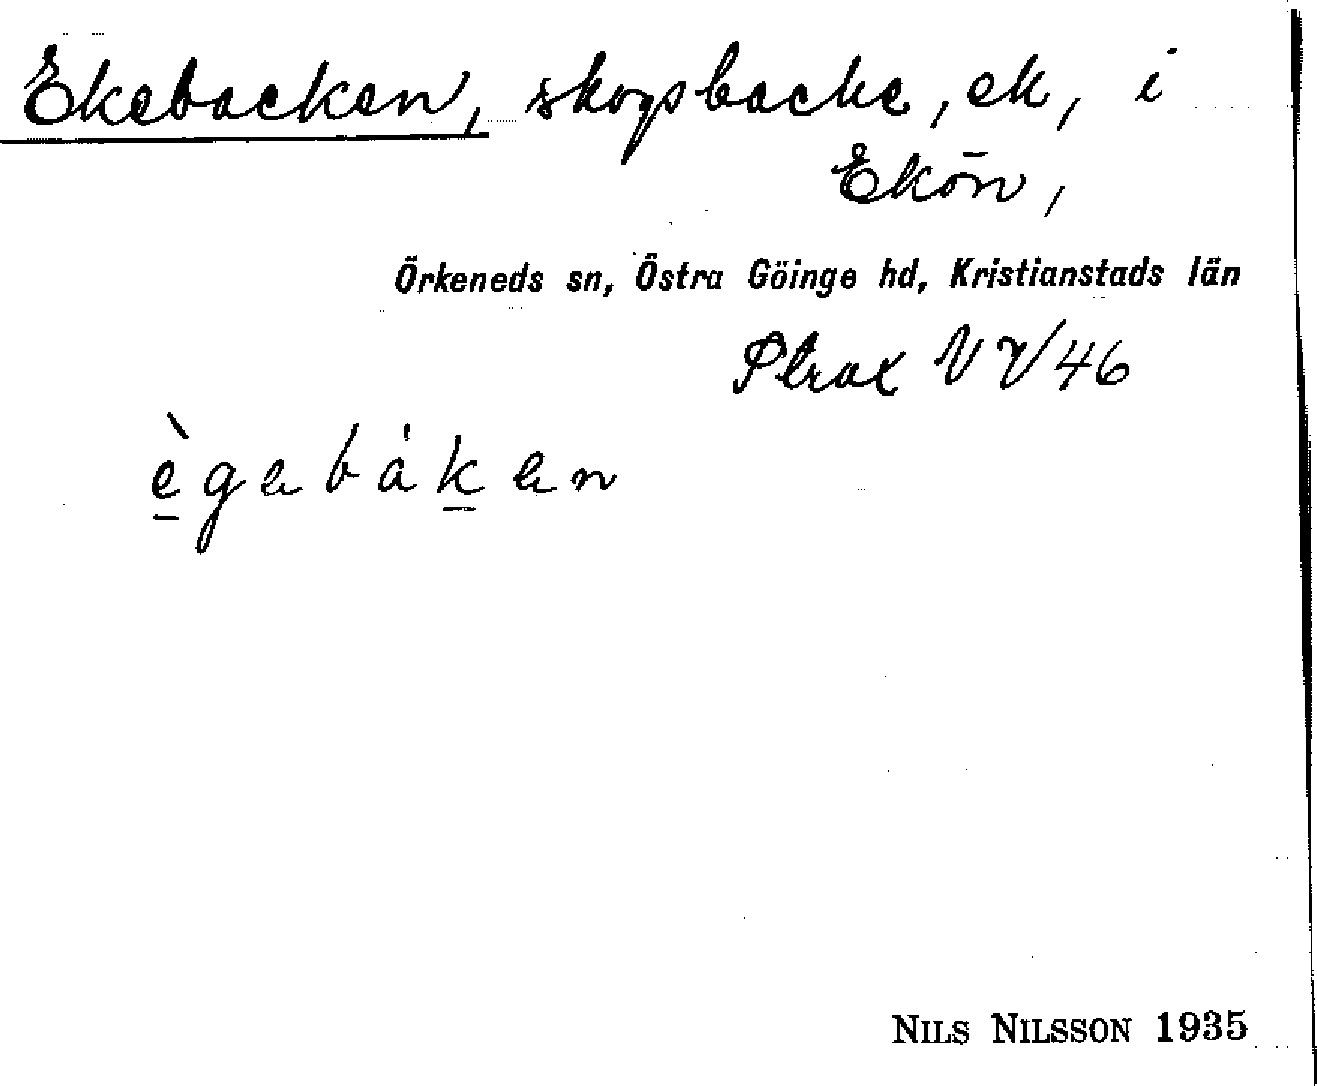 Ekebacken, skogsbacke, ek, i
Ekön,
Örkeneds sn, Östra Göinge hd, Kristianstads län
V V/46
ègabákan
NILS NILSSON 1935